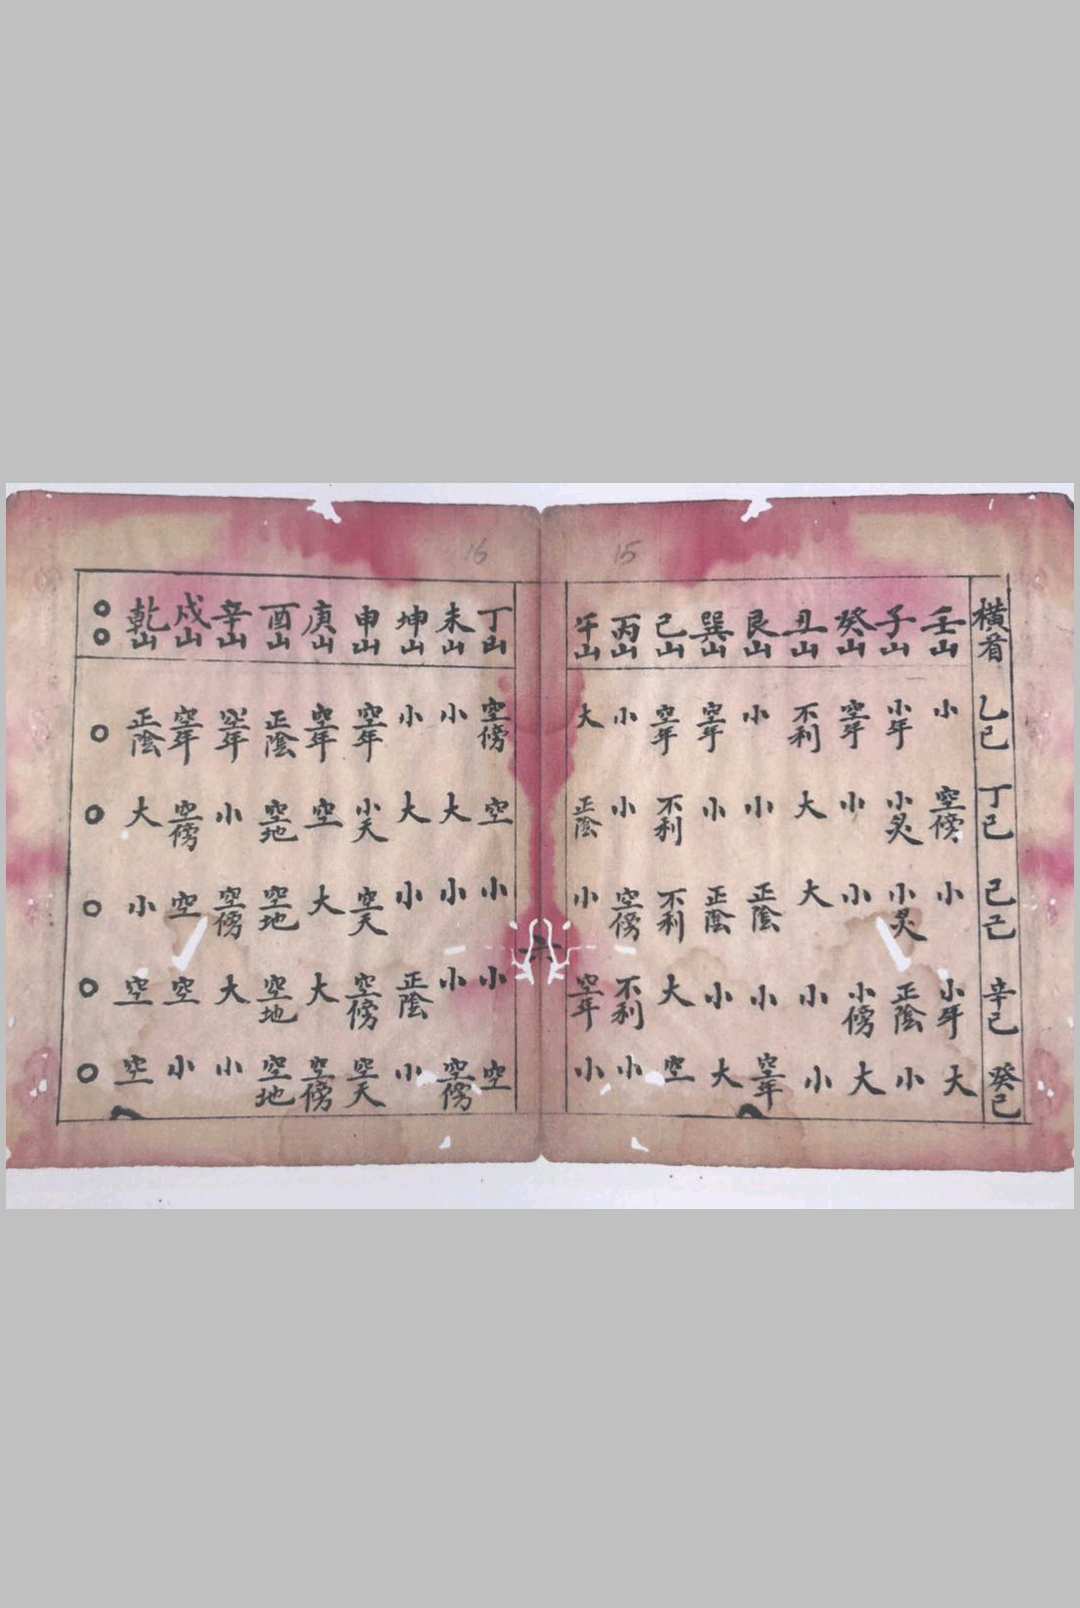 15
橫看 乙巳 丁巳 己巳 辛巳 癸巳
壬山 小 空傍 小 小年 大
子山 小年 小炙 小炙 正陰 小
癸山 空年 小 小 小傍 大
丑山 不利 大 大 小 小
艮山 小 小 正陰 小 空年
巽山 空年 小 正陰 小 大
巳山 空年 不利 不利 大 空
丙山 小 小 空傍 不利 小
午山 大 正陰 小 空年 小
六
16
丁山 空傍 空 小 小 空
未山 小 大 小 小 空傍
坤山 小 大 小 正陰 小
申山 空年 小天 空天 空傍 空天
庚山 空年 空 大 大 空傍
酉山 正陰 空地 空地 空地 空地
辛山 空年 小 空傍 大 小
戍山 空年 空傍 空 空 小
乾山 正陰 大 小 空 空
○○ ○ ○ ○ ○ ○